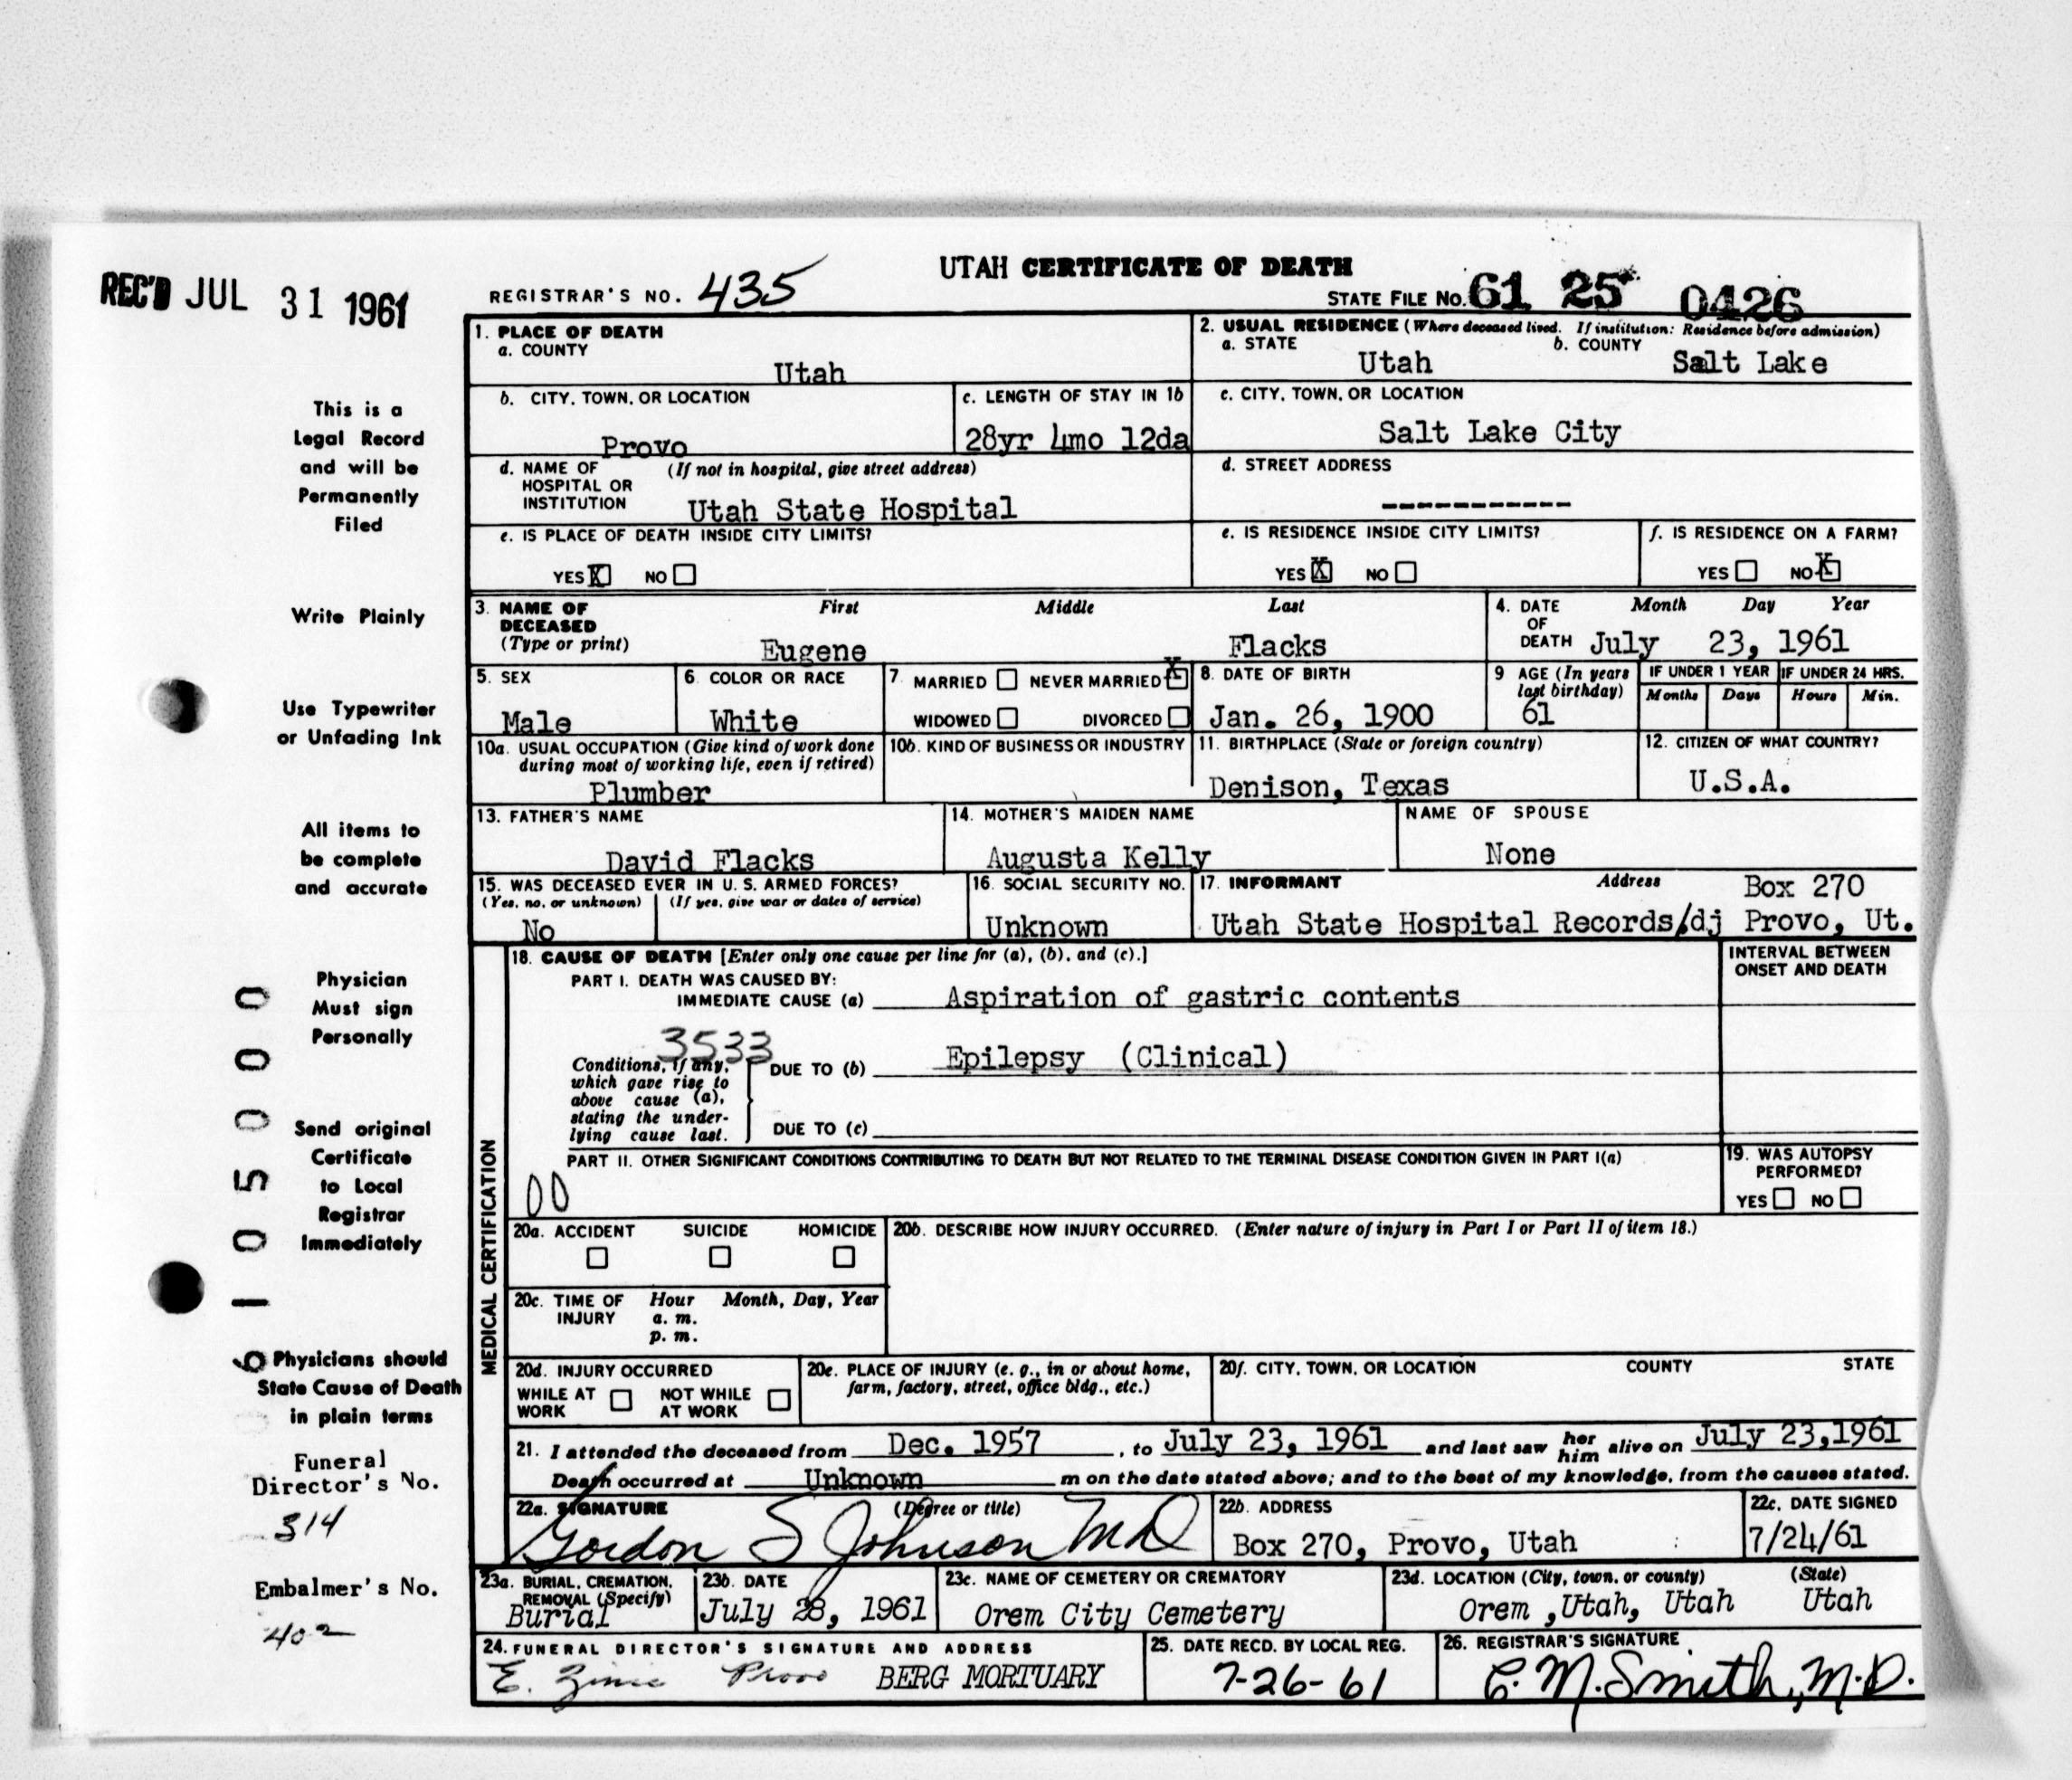 UTAH CERTIFICATE OF DEATH
REC'D JUL 31 1961
REGISTRAR'S NO. 435
STATE FILE NO. 61 25 0426
1. PLACE OF DEATH
a. COUNTY
Utah
2. USUAL RESIDENCE (Where deceased lived. If institution: Residence before admission)
a. STATE Utah
b. COUNTY Salt Lake
b. CITY, TOWN, OR LOCATION
Provo
c. LENGTH OF STAY IN 1b
28yr 4mo 12da
c. CITY, TOWN, OR LOCATION
Salt Lake City
d. NAME OF HOSPITAL OR INSTITUTION (If not in hospital, give street address)
Utah State Hospital
d. STREET ADDRESS
-----------
e. IS PLACE OF DEATH INSIDE CITY LIMITS?
YES X NO
e. IS RESIDENCE INSIDE CITY LIMITS?
YES X NO
f. IS RESIDENCE ON A FARM?
YES NO X
3. NAME OF DECEASED (Type or print)
First Middle Last
Eugene Flacks
4. DATE OF DEATH Month Day Year
July 23, 1961
5. SEX
Male
6. COLOR OR RACE
White
7. MARRIED NEVER MARRIED X
WIDOWED DIVORCED
8. DATE OF BIRTH
Jan. 26, 1900
9 AGE (In years last birthday)
61
IF UNDER 1 YEAR
Months Days
IF UNDER 24 HRS.
Hours Min.
10a. USUAL OCCUPATION (Give kind of work done during most of working life, even if retired)
Plumber
10b. KIND OF BUSINESS OR INDUSTRY
11. BIRTHPLACE (State or foreign country)
Denison, Texas
12. CITIZEN OF WHAT COUNTRY?
U.S.A.
13. FATHER'S NAME
David Flacks
14. MOTHER'S MAIDEN NAME
Augusta Kelly
NAME OF SPOUSE
None
15. WAS DECEASED EVER IN U. S. ARMED FORCES?
(Yes, no, or unknown) (If yes, give war or dates of service)
No
16. SOCIAL SECURITY NO.
Unknown
17. INFORMANT Address
Box 270
Utah State Hospital Records/dj Provo, Ut.
MEDICAL CERTIFICATION
18. CAUSE OF DEATH [Enter only one cause per line for (a), (b), and (c).]
INTERVAL BETWEEN ONSET AND DEATH
PART I. DEATH WAS CAUSED BY:
IMMEDIATE CAUSE (a) Aspiration of gastric contents
3533
Conditions, if any, which gave rise to above cause (a), stating the underlying cause last.
DUE TO (b) Epilepsy (Clinical)
DUE TO (c)
PART II. OTHER SIGNIFICANT CONDITIONS CONTRIBUTING TO DEATH BUT NOT RELATED TO THE TERMINAL DISEASE CONDITION GIVEN IN PART I(a)
00
19. WAS AUTOPSY PERFORMED?
YES NO
20a. ACCIDENT SUICIDE HOMICIDE
20b. DESCRIBE HOW INJURY OCCURRED. (Enter nature of injury in Part I or Part II of item 18.)
20c. TIME OF INJURY Hour Month, Day, Year
a. m.
p. m.
20d. INJURY OCCURRED
WHILE AT WORK NOT WHILE AT WORK
20e. PLACE OF INJURY (e. g., in or about home, farm, factory, street, office bldg., etc.)
20f. CITY, TOWN, OR LOCATION COUNTY STATE
21. I attended the deceased from Dec. 1957, to July 23, 1961 and last saw her him alive on July 23,1961
Death occurred at Unknown m on the date stated above; and to the best of my knowledge, from the causes stated.
22a. SIGNATURE (Degree or title)
Gordon S Johnson MD
22b. ADDRESS
Box 270, Provo, Utah
22c. DATE SIGNED
7/24/61
23a. BURIAL, CREMATION, REMOVAL (Specify)
Burial
23b. DATE
July 28, 1961
23c. NAME OF CEMETERY OR CREMATORY
Orem City Cemetery
23d. LOCATION (City, town, or county) (State)
Orem ,Utah, Utah Utah
24. FUNERAL DIRECTOR'S SIGNATURE AND ADDRESS
E. Provo BERG MORTUARY
25. DATE RECD. BY LOCAL REG.
7-26-61
26. REGISTRAR'S SIGNATURE
C. M. Smith, M.D.
This is a
Legal Record
and will be
Permanently
Filed
Write Plainly
Use Typewriter
or Unfading Ink
All items to
be complete
and accurate
Physician
Must sign
Personally
Send original
Certificate
to Local
Registrar
Immediately
Physicians should
State Cause of Death
in plain terms
Funeral
Director's No.
314
Embalmer's No.
402
105000